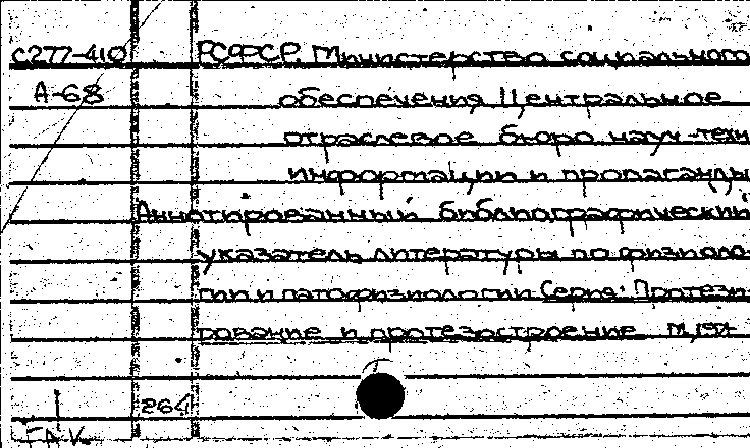 С277-410 РСФСР. Министерство социального
А-68 обеспечения Центральное
отраслевое бюро науч-техн
информации и пропаганды
Аннотированный библиографический
указатель литературы по физиоло-
гии и патофизиологии Серия: Протези-
рование и протезостроение М,197
264